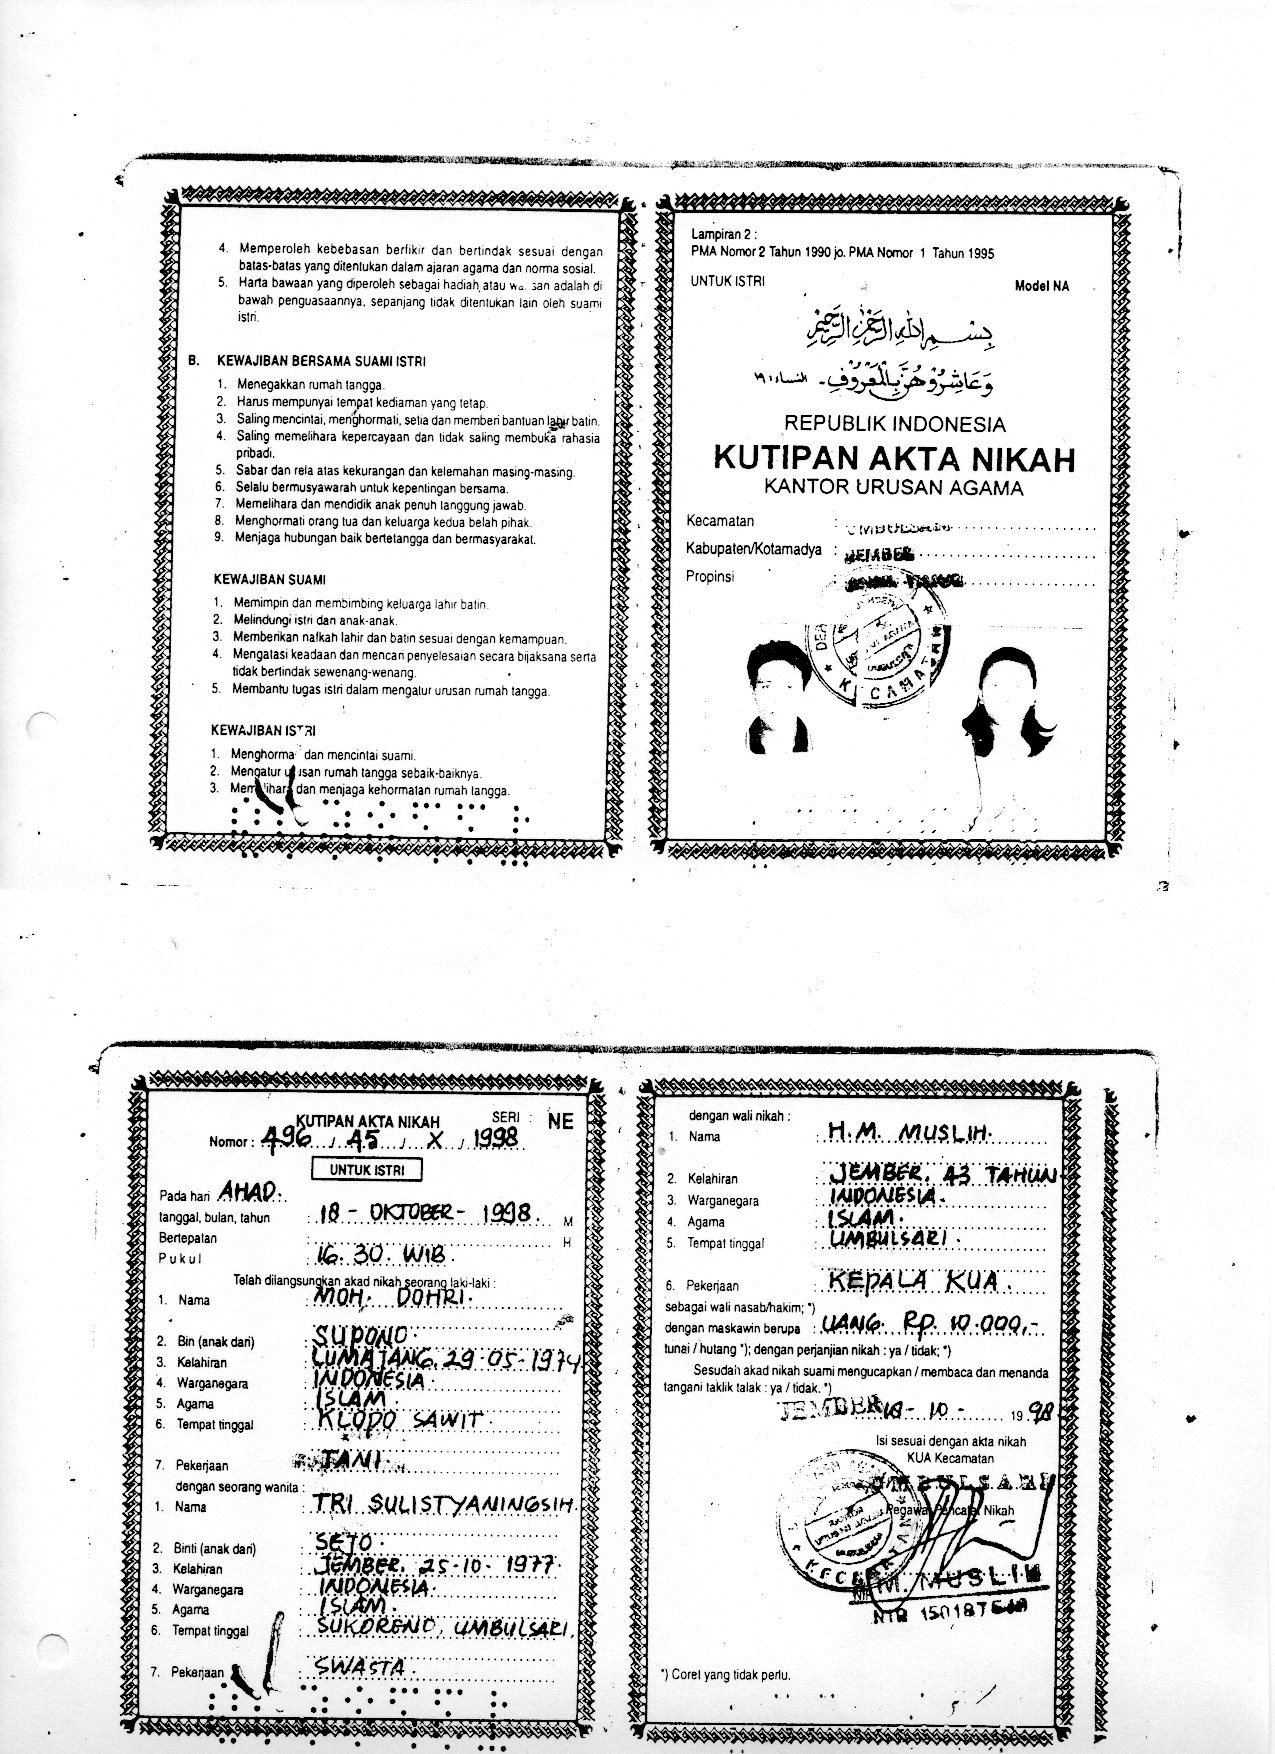 4. Memperoleh kebebasan berfikir dan bertindak sesuai dengan
batas-batas yang ditentukan dalam ajaran agama dan norma sosial.
5. Harta bawaan yang diperoleh sebagai hadiah atau adalah di
bawah penguasaannya, sepanjang tidak ditentukan lain oleh suami
istri.
B. KEWAJIBAN BERSAMA SUAMI ISTRI
1. Menegakkan rumah tangga.
2. Harus mempunyai tempat kediaman yang tetap.
3. Saling mencintai, menghormati, setia dan memberi bantuan lahir batin.
4. Saling memelihara kepercayaan dan tidak saling membuka rahasia
pribadi.
5. Sabar dan rela atas kekurangan dan kelemahan masing-masing.
6. Selalu bermusyawarah untuk kepentingan bersama.
7. Memelihara dan mendidik anak penuh tanggung jawab.
8. Menghormati orang tua dan keluarga kedua belah pihak.
9. Menjaga hubungan baik bertetangga dan bermasyarakat.
KEWAJIBAN SUAMI
1. Memimpin dan membimbing keluarga lahir batin.
2. Melindungi istri dan anak-anak.
3. Memberikan nafkah lahir dan batin sesuai dengan kemampuan.
4. Mengatasi keadaan dan mencari penyelesaian secara bijaksana serta
tidak bertindak sewenang-wenang.
5. Membantu tugas istri dalam mengatur urusan rumah tangga.
KEWAJIBAN ISTRI
1. Menghorma dan mencintai suami.
2. Mengatur urusan rumah tangga sebaik-baiknya.
3. Memelihara dan menjaga kehormatan rumah tangga.
Lampiran 2 :
PMA Nomor 2 Tahun 1990 jo. PMA Nomor 1 Tahun 1995
UNTUK ISTRI
Model NA
بسم الله الرحمن الرحيم
وَعَاشِرُوْهُنَّ بِالْمَعْرُوْفِ. النساء : ١٩
REPUBLIK INDONESIA
KUTIPAN AKTA NIKAH
KANTOR URUSAN AGAMA
Kecamatan : UMBULSARI
Kabupaten/Kotamadya : JEMBER
Propinsi :
KECAMATAN
KUTIPAN AKTA NIKAH SERI : NE
Nomor : 496 / 45 / X / 1998
UNTUK ISTRI
Pada hari AHAD.
tanggal, bulan, tahun : 18 - OKTOBER - 1998. M
Bertepatan : H
Pukul : 16.30 WIB.
Telah dilangsungkan akad nikah seorang laki-laki :
1. Nama : MOH. DOHRI.
2. Bin (anak dari) : SUPONO.
3. Kelahiran : LUMAJANG, 29-05-1974
4. Warganegara : INDONESIA.
5. Agama : ISLAM.
6. Tempat tinggal : KLOPO SAWIT.
7. Pekerjaan : TANI.
dengan seorang wanita :
1. Nama : TRI SULISTYANINGSIH.
2. Binti (anak dari) : SEJO.
3. Kelahiran : JEMBER, 25-10-1977.
4. Warganegara : INDONESIA.
5. Agama : ISLAM.
6. Tempat tinggal : SUKORENO, UMBULSARI.
7. Pekerjaan : SWASTA.
dengan wali nikah :
1. Nama : H.M. MUSLIH.
2. Kelahiran : JEMBER, 43 TAHUN.
3. Warganegara : INDONESIA.
4. Agama : ISLAM.
5. Tempat tinggal : UMBULSARI.
6. Pekerjaan : KEPALA KUA.
sebagai wali nasab/hakim; *)
dengan maskawin berupa : UANG. Rp. 10.000,-
tunai / hutang *); dengan perjanjian nikah : ya / tidak; *)
Sesudah akad nikah suami mengucapkan / membaca dan menanda
tangani taklik talak : ya / tidak. *)
JEMBER 18-10- 1998
Isi sesuai dengan akta nikah
KUA Kecamatan
UMBULSARI
Pegawai Pencatat Nikah
KECAMATAN
M. MUSLIH
NIP
*) Coret yang tidak perlu.